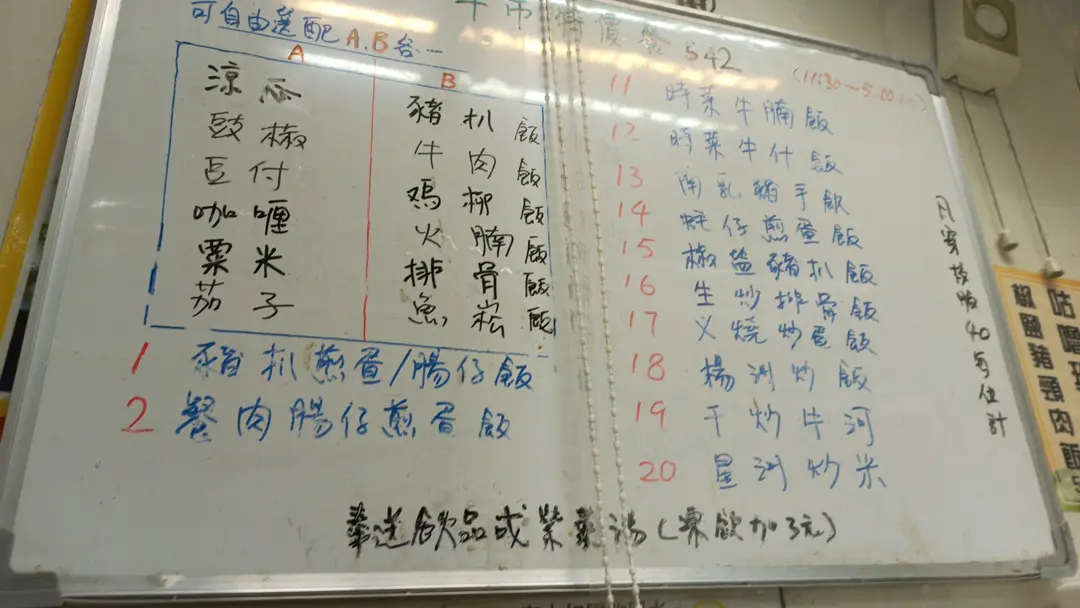 午市特價餐 $42
(11:30~5:00
可自由選配 A.B 台...
A B
涼瓜 豬扒飯
豉椒 牛肉飯
豆付 鸡柳飯
咖喱 火腩飯
粟米 排骨飯
茄子 魚崧飯
1 豬扒煎蛋/腸仔飯
2 餐肉腸仔煎蛋飯
11 時菜牛腩飯
12 時菜牛什飯
13 南乳豬手飯
14 蚝仔煎蛋飯
15 椒盐豬扒飯
16 生炒排骨飯
17 义燒炒蛋飯
18 楊洲炒飯
19 干炒牛河
20 星洲炒米
40每位計
送飲品或紫菜湯(凍飲加3元)
椒鹽豬頸肉飯
咕嚕